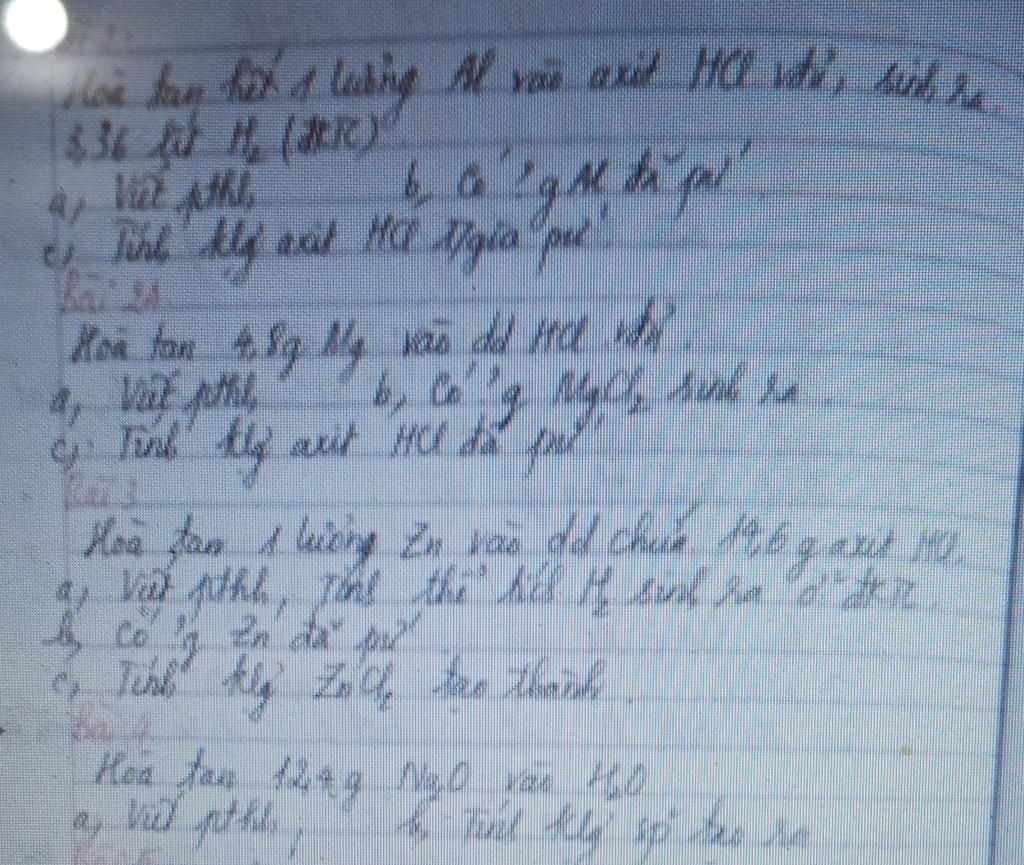 Hoà tan hết 1 lượng Al vào axit HCl vđủ, sinh ra
3,36 lít H₂ (đktc)
a, Viết pthh b, Có ? g Al đã pư
c, Tính klg axit HCl t/gia pư
Bài 2
Hoà tan 4,8g Mg vào dd HCl vđủ.
a, Viết pthh b, Có ? g MgCl₂ sinh ra
c, Tính klg axit HCl đã pư
Bài 3
Hoà tan 1 lượng Zn vào dd chứa g axit HCl.
a, Viết pthh, Tính thể tích H₂ sinh ra ở đktc.
b, Có ? g Zn đã pư
c, Tính klg ZnCl₂ tạo thành
Bài 4
Hoà tan 12,4g Na₂O vào H₂O
a, Viết pthh, b, Tính klg sp tạo ra